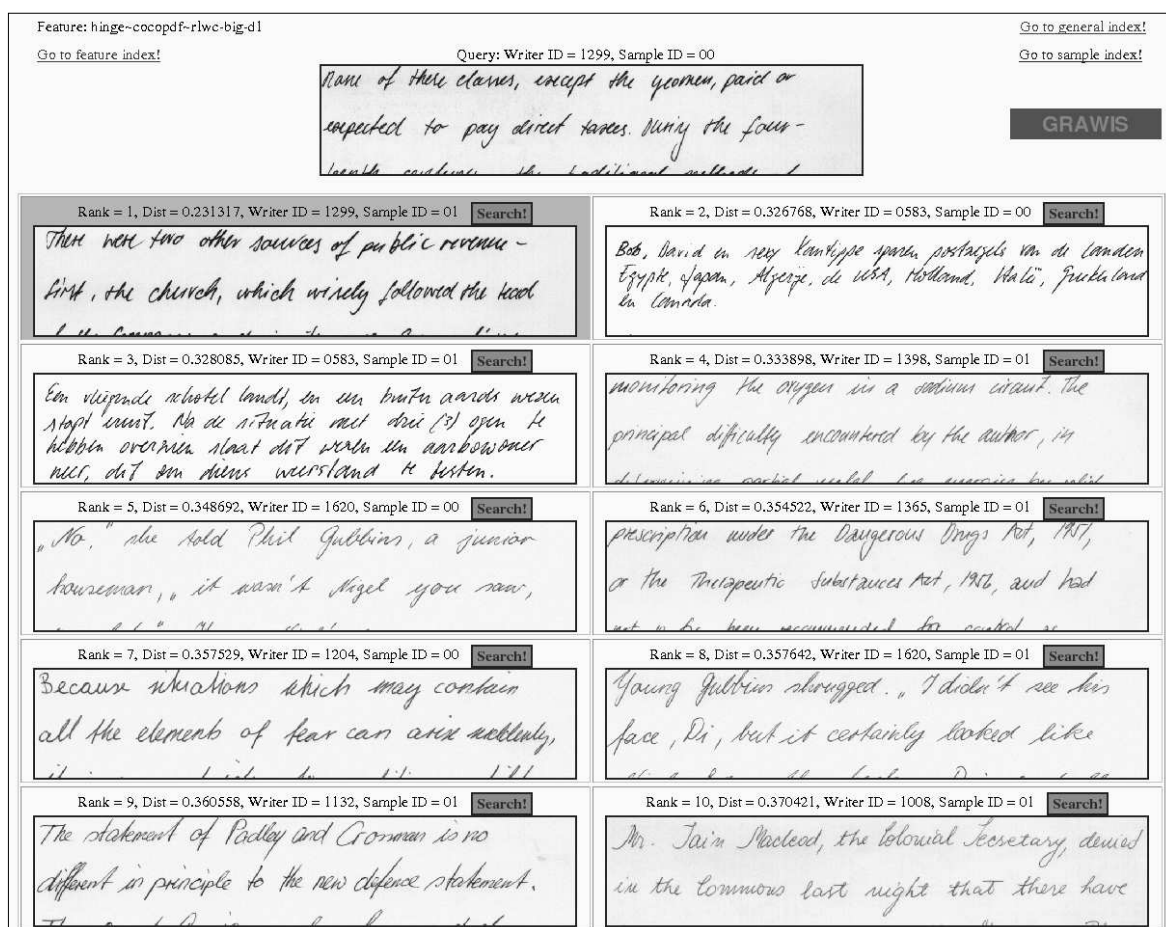 Feature: hinge~cocopdf~rlwc-big-d1
Go to general index!
Go to feature index!
Query: Writer ID = 1299, Sample ID = 00
Go to sample index!
None of these classes, except the yeomen, paid or
expected to pay direct taxes. During the four-
the traditional methods of
GRAWIS
Rank = 1, Dist = 0.231317, Writer ID = 1299, Sample ID = 01 Search!
There were two other sources of public revenue -
first, the church, which wisely followed the road
Rank = 2, Dist = 0.326768, Writer ID = 0583, Sample ID = 00 Search!
Bob, David en sexy Xantippe sparen postzegels van de landen
Egypte, Japan, Algerije, de USA, Holland, Italië, Griekenland
en Canada.
Rank = 3, Dist = 0.328085, Writer ID = 0583, Sample ID = 01 Search!
Een vliegende schotel landt, en een buiten aards wezen
stapt eruit. Na de situatie met drie (3) ogen te
hebben overzien slaat dit wezen een aardbewoner
neer, dit om diens weerstand te testen.
Rank = 4, Dist = 0.333898, Writer ID = 1398, Sample ID = 01 Search!
monitoring the oxygen in a sodium circuit. The
principal difficulty encountered by the author, in
determining partial
Rank = 5, Dist = 0.348692, Writer ID = 1620, Sample ID = 00 Search!
„No," she told Phil Gubbins, a junior
houseman, „it wasn't Nigel you saw,
Rank = 6, Dist = 0.354522, Writer ID = 1365, Sample ID = 01 Search!
prescription under the Dangerous Drugs Act, 1951,
or the Therapeutic Substances Act, 1956, and had
not been recommended for control as
Rank = 7, Dist = 0.357529, Writer ID = 1204, Sample ID = 00 Search!
Because situations which may contain
all the elements of fear can arise suddenly,
Rank = 8, Dist = 0.357642, Writer ID = 1620, Sample ID = 01 Search!
Young Gubbins shrugged. „I didn't see his
face, Di, but it certainly looked like
Rank = 9, Dist = 0.360558, Writer ID = 1132, Sample ID = 01 Search!
The statement of Padley and Crosman is no
different in principle to the new defence statement.
Rank = 10, Dist = 0.370421, Writer ID = 1008, Sample ID = 01 Search!
Mr. Iain Macleod, the Colonial Secretary, denied
in the Commons last night that there have